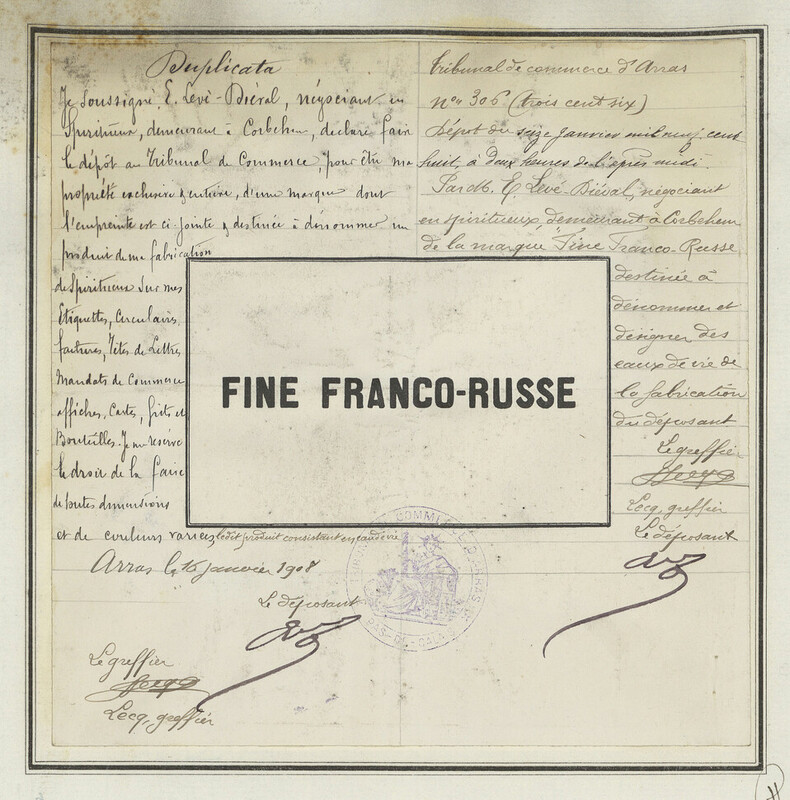 Duplicata
Je soussigné, E. Levé-Biéval, négociant en
Spiritueux, demeurant à Corbehem, déclare faire
le dépôt au Tribunal de Commerce, pour être ma
propriété exclusive & entière, d'une marque dont
l'empreinte est ci-jointe & destinée à dénommer un
produit de ma fabrication
de Spiritueux sur mes
Étiquettes, Circulaires,
factures, Têtes de Lettres
Mandats de Commerce
affiches, Cartes, fûts et
Bouteilles. Je me réserve
le droit de la faire
de toutes dimensions
et de couleurs variées ledit produit consistant en eau de vie
Arras le 16 janvier 1908
Le déposant
Le greffier
Lecq, greffier
Tribunal de commerce d'Arras
n° 306 (trois cent six)
Dépôt du seize Janvier mil neuf cent
huit, à deux heures de l'après midi.
Par M. E. Levé-Biéval, négociant
en spiritueux, demeurant à Corbehem
de la marque "Fine Franco-Russe
destinée à
dénommer et
désigner des
eaux de vie de
la fabrication
du déposant
Le greffier
Lecq, greffier
Le déposant
FINE FRANCO-RUSSE
TRIBUNAL DE COMMERCE D'ARRAS
PAS-DE-CALAIS